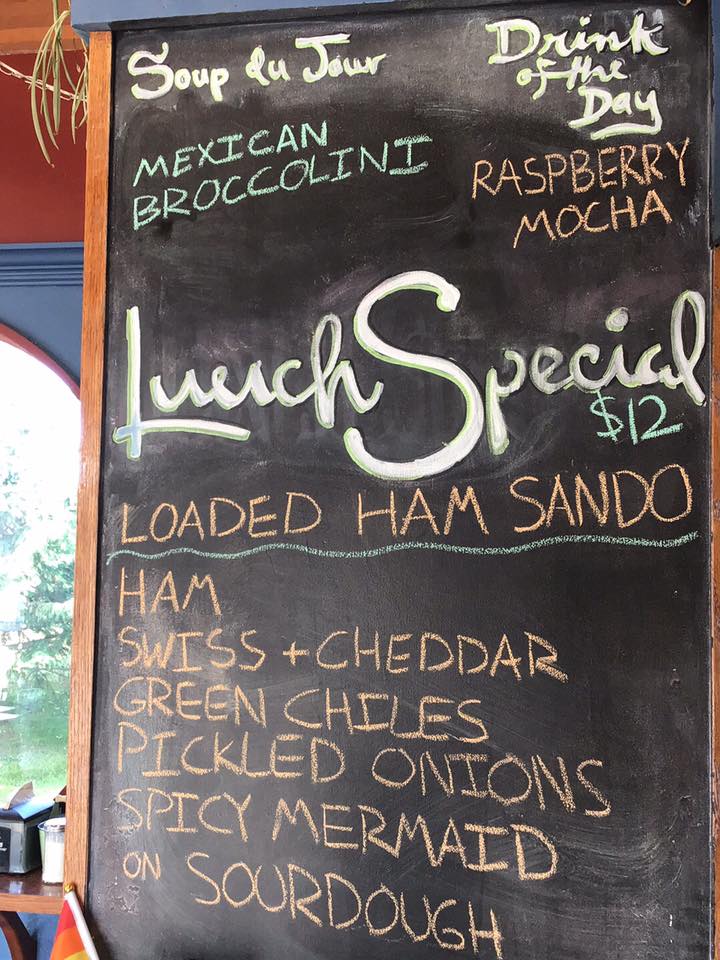 Soup du Jour
MEXICAN
BROCCOLINI
Drink
of the
Day
RASPBERRY
MOCHA
Lunch Special
$12
LOADED HAM SANDO
HAM
SWISS + CHEDDAR
GREEN CHILES
PICKLED ONIONS
SPICY MERMAID
ON SOURDOUGH